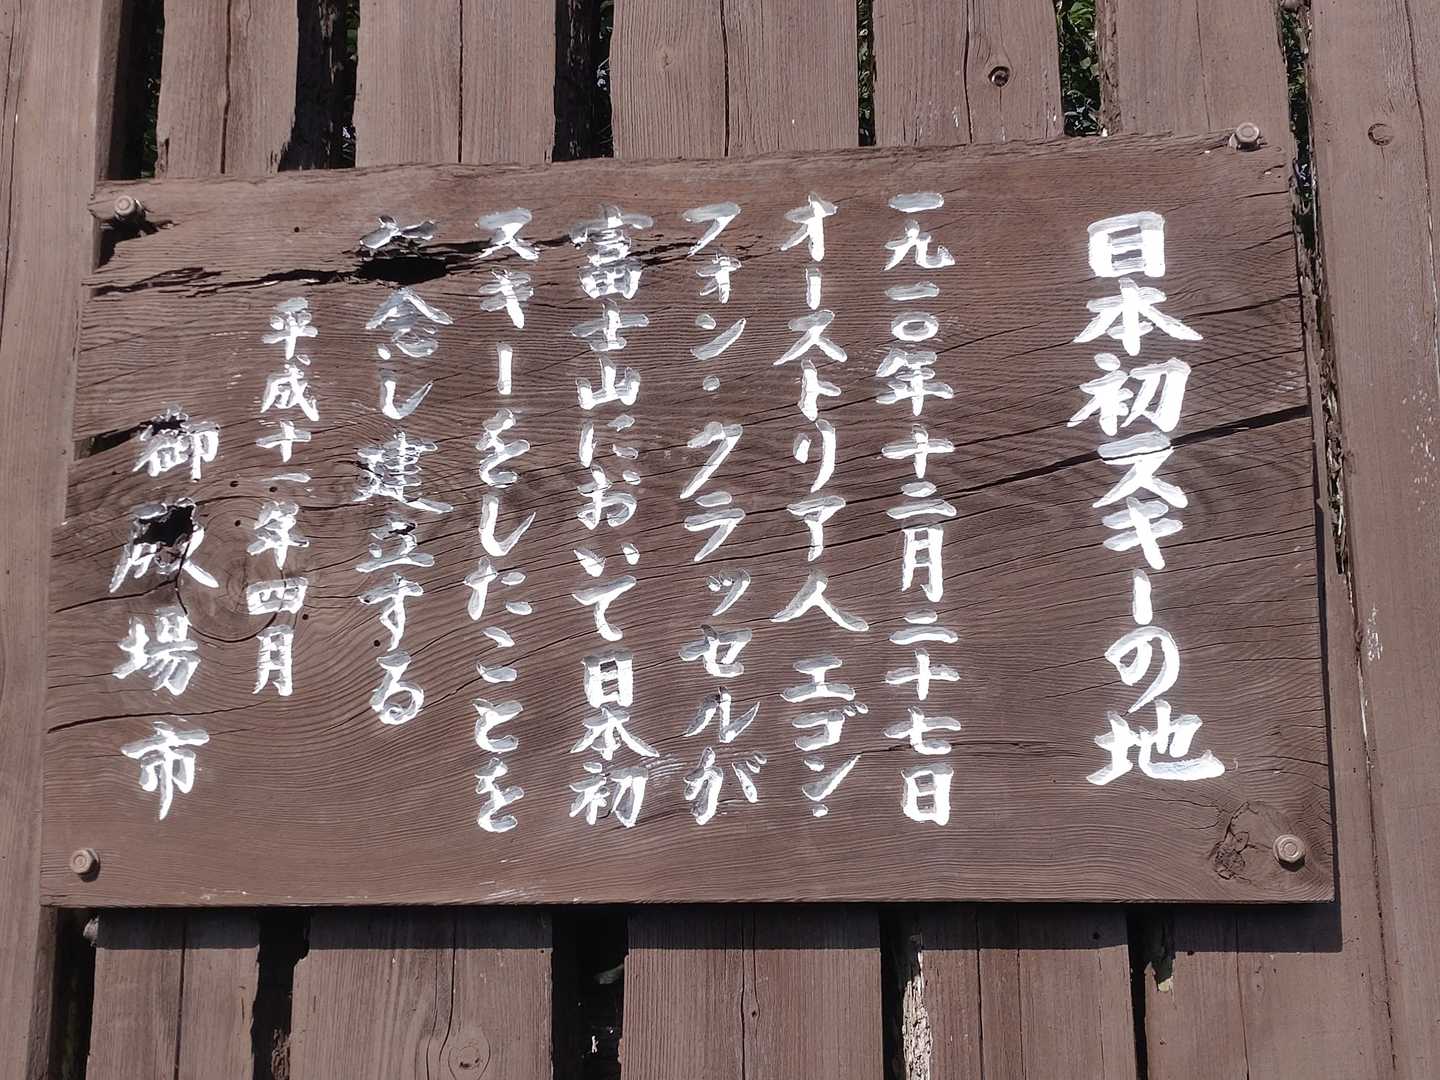 日本初スキーの地
一九一〇年十二月二十七日
オーストリア人 エゴン・
フォン・クラッセルが
富士山において日本初
スキーをしたことを
念し建立する
平成十一年四月
御殿場市